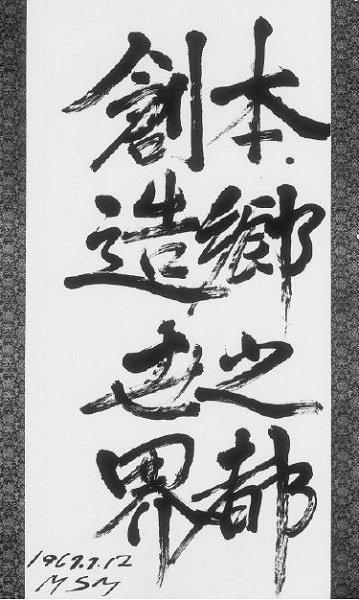 本郷之都
創造世界
1967.7.12
MSM